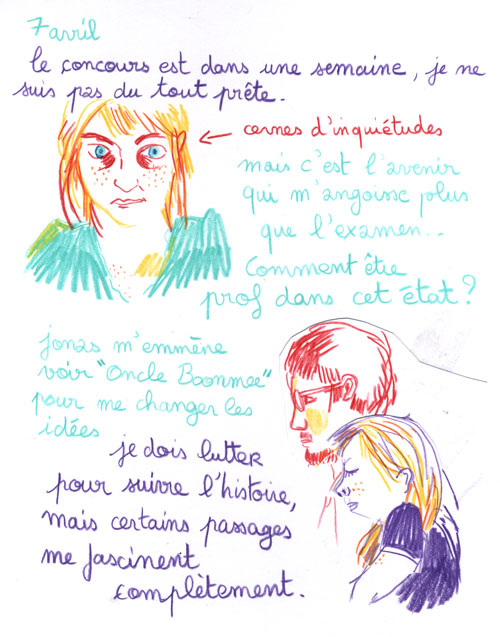 7 avril
le concours est dans une semaine, je ne
suis pas du tout prête.
cernes d'inquiétudes
mais c'est l'avenir
qui m'angoisse plus
que l'examen...
Comment être
prof dans cet état?
jonas m'emmène
voir "Oncle Boonmee"
pour me changer les
idées
je dois lutter
pour suivre l'histoire,
mais certains passages
me fascinent
complètement.